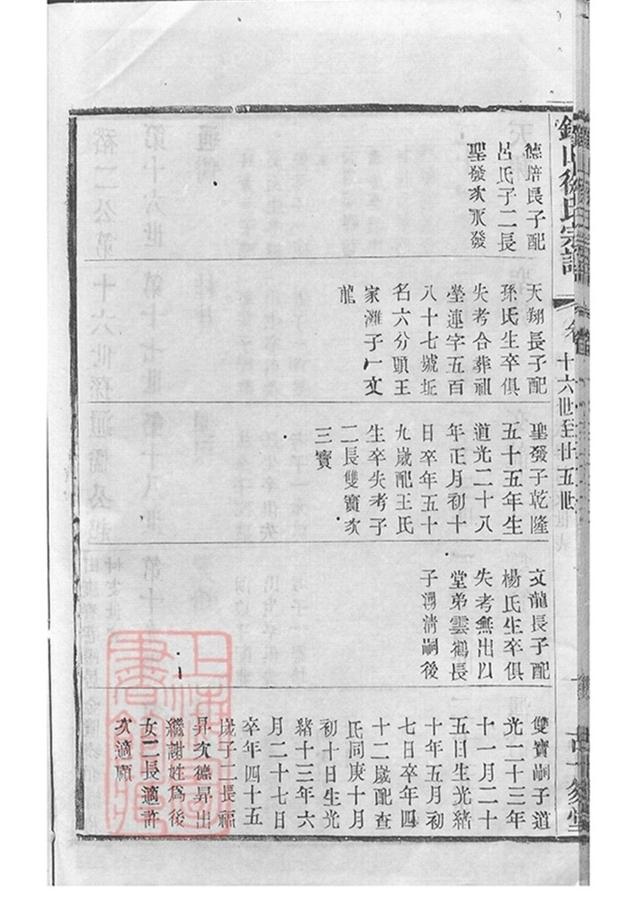 德培長子配
呂氏子二長
聖發次永發
天翔長子配
孫氏生卒俱
失考合葬祖
塋連字五百
八十七號坵
名六分頭王
家灘子一文
龍
聖發子乾隆
五十五年生
道光二十八
年正月初十
日卒年五十
九歲配王氏
生卒失考子
二長雙寶次
三寶
文龍長子配
楊氏生卒俱
失考無出以
堂弟雲鶴長
子馮清嗣後
雙寶嗣子道
光二十三年
十一月二十
五日生光緒
十年五月初
七日卒年四
十二歲配查
氏同庚十月
初十日生光
緒十三年六
月二十七日
卒年四十五
歲子二長福
昇次德昇出
繼謝姓為後
女二長適許
次適顧
山徐氏宗譜
十六世至廿五世